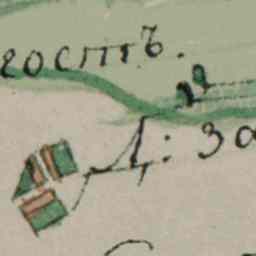 гостъ.
Д: За